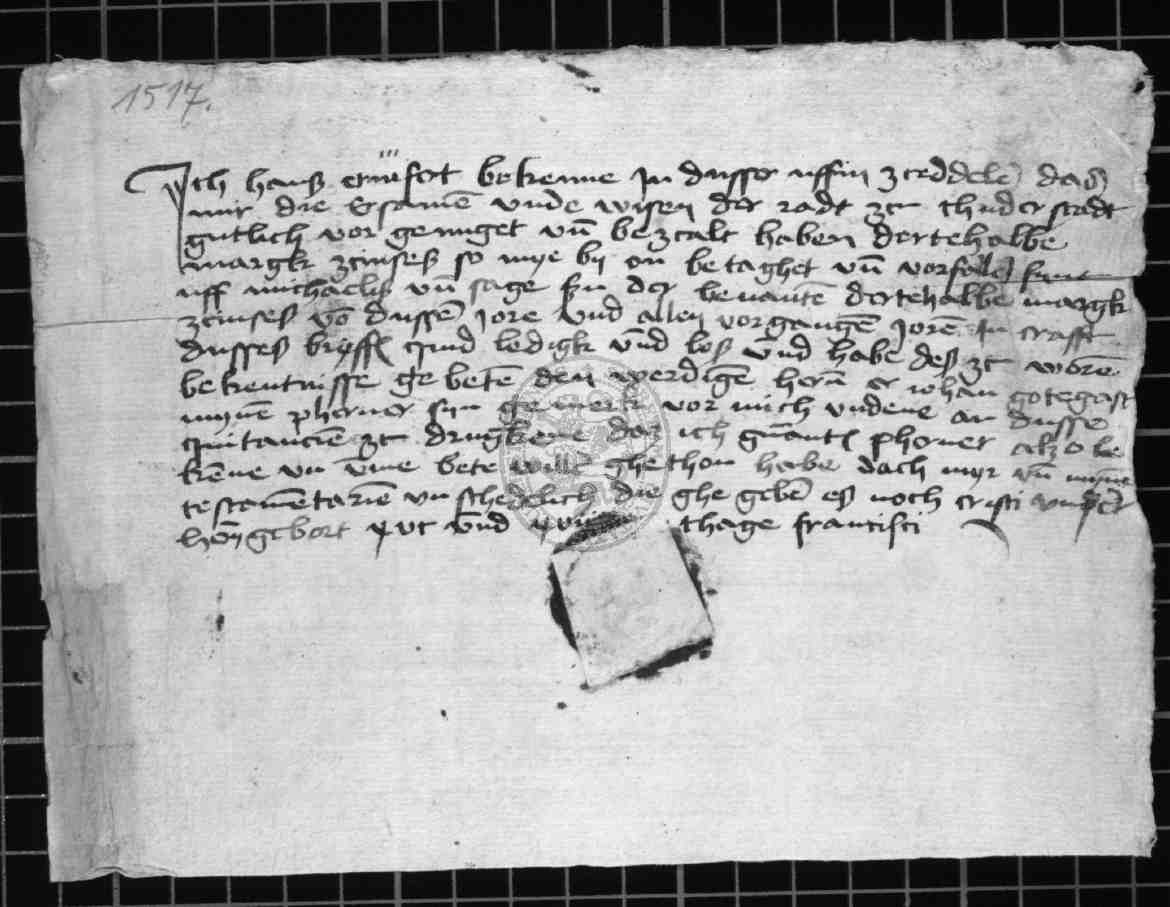 1517.
Ich hans erwfert bekenne In dusser uffin zceddelē das
mir die Ersamē unde wisen der radt zcu thuderstadt
gutlich vor genuget vn̄ bezcalt haben dertehalbe
margk zcinses so mye by on betaghet vn̄ vorfallē synt
uff michaelis vn̄ sage sy der benantē dertehalbe margk
zcinses vō dussē Jore und allen vorgangē Jorē In crafft
dusses briffs quid ledigk vnd los vnd habe des zcu worē
bekentnisse gebetē den werdigē herñ er iohan gotegast
mynē pherner syn gemerk vor mich undene an dusse
quitanciē zcu drugkene daz ich phorner alzo be
kēne un vme bete willē ghethon habe doch myr vn̄ mynē
testamētariē unschedelich die ghegebē es noch cristi unser
hērn gebort xvc vnd xvii thage francisci